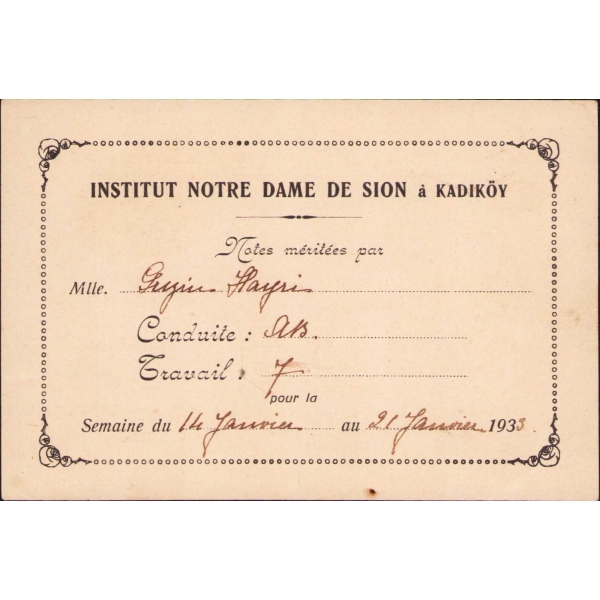 INSTITUT NOTRE DAME DE SION à KADIKÖY
Notes méritées par
Mlle. Guzin Hayri
Conduite : AB.
Travail : 7
pour la
Semaine du 14 Janvier au 21 Janvier 1933.